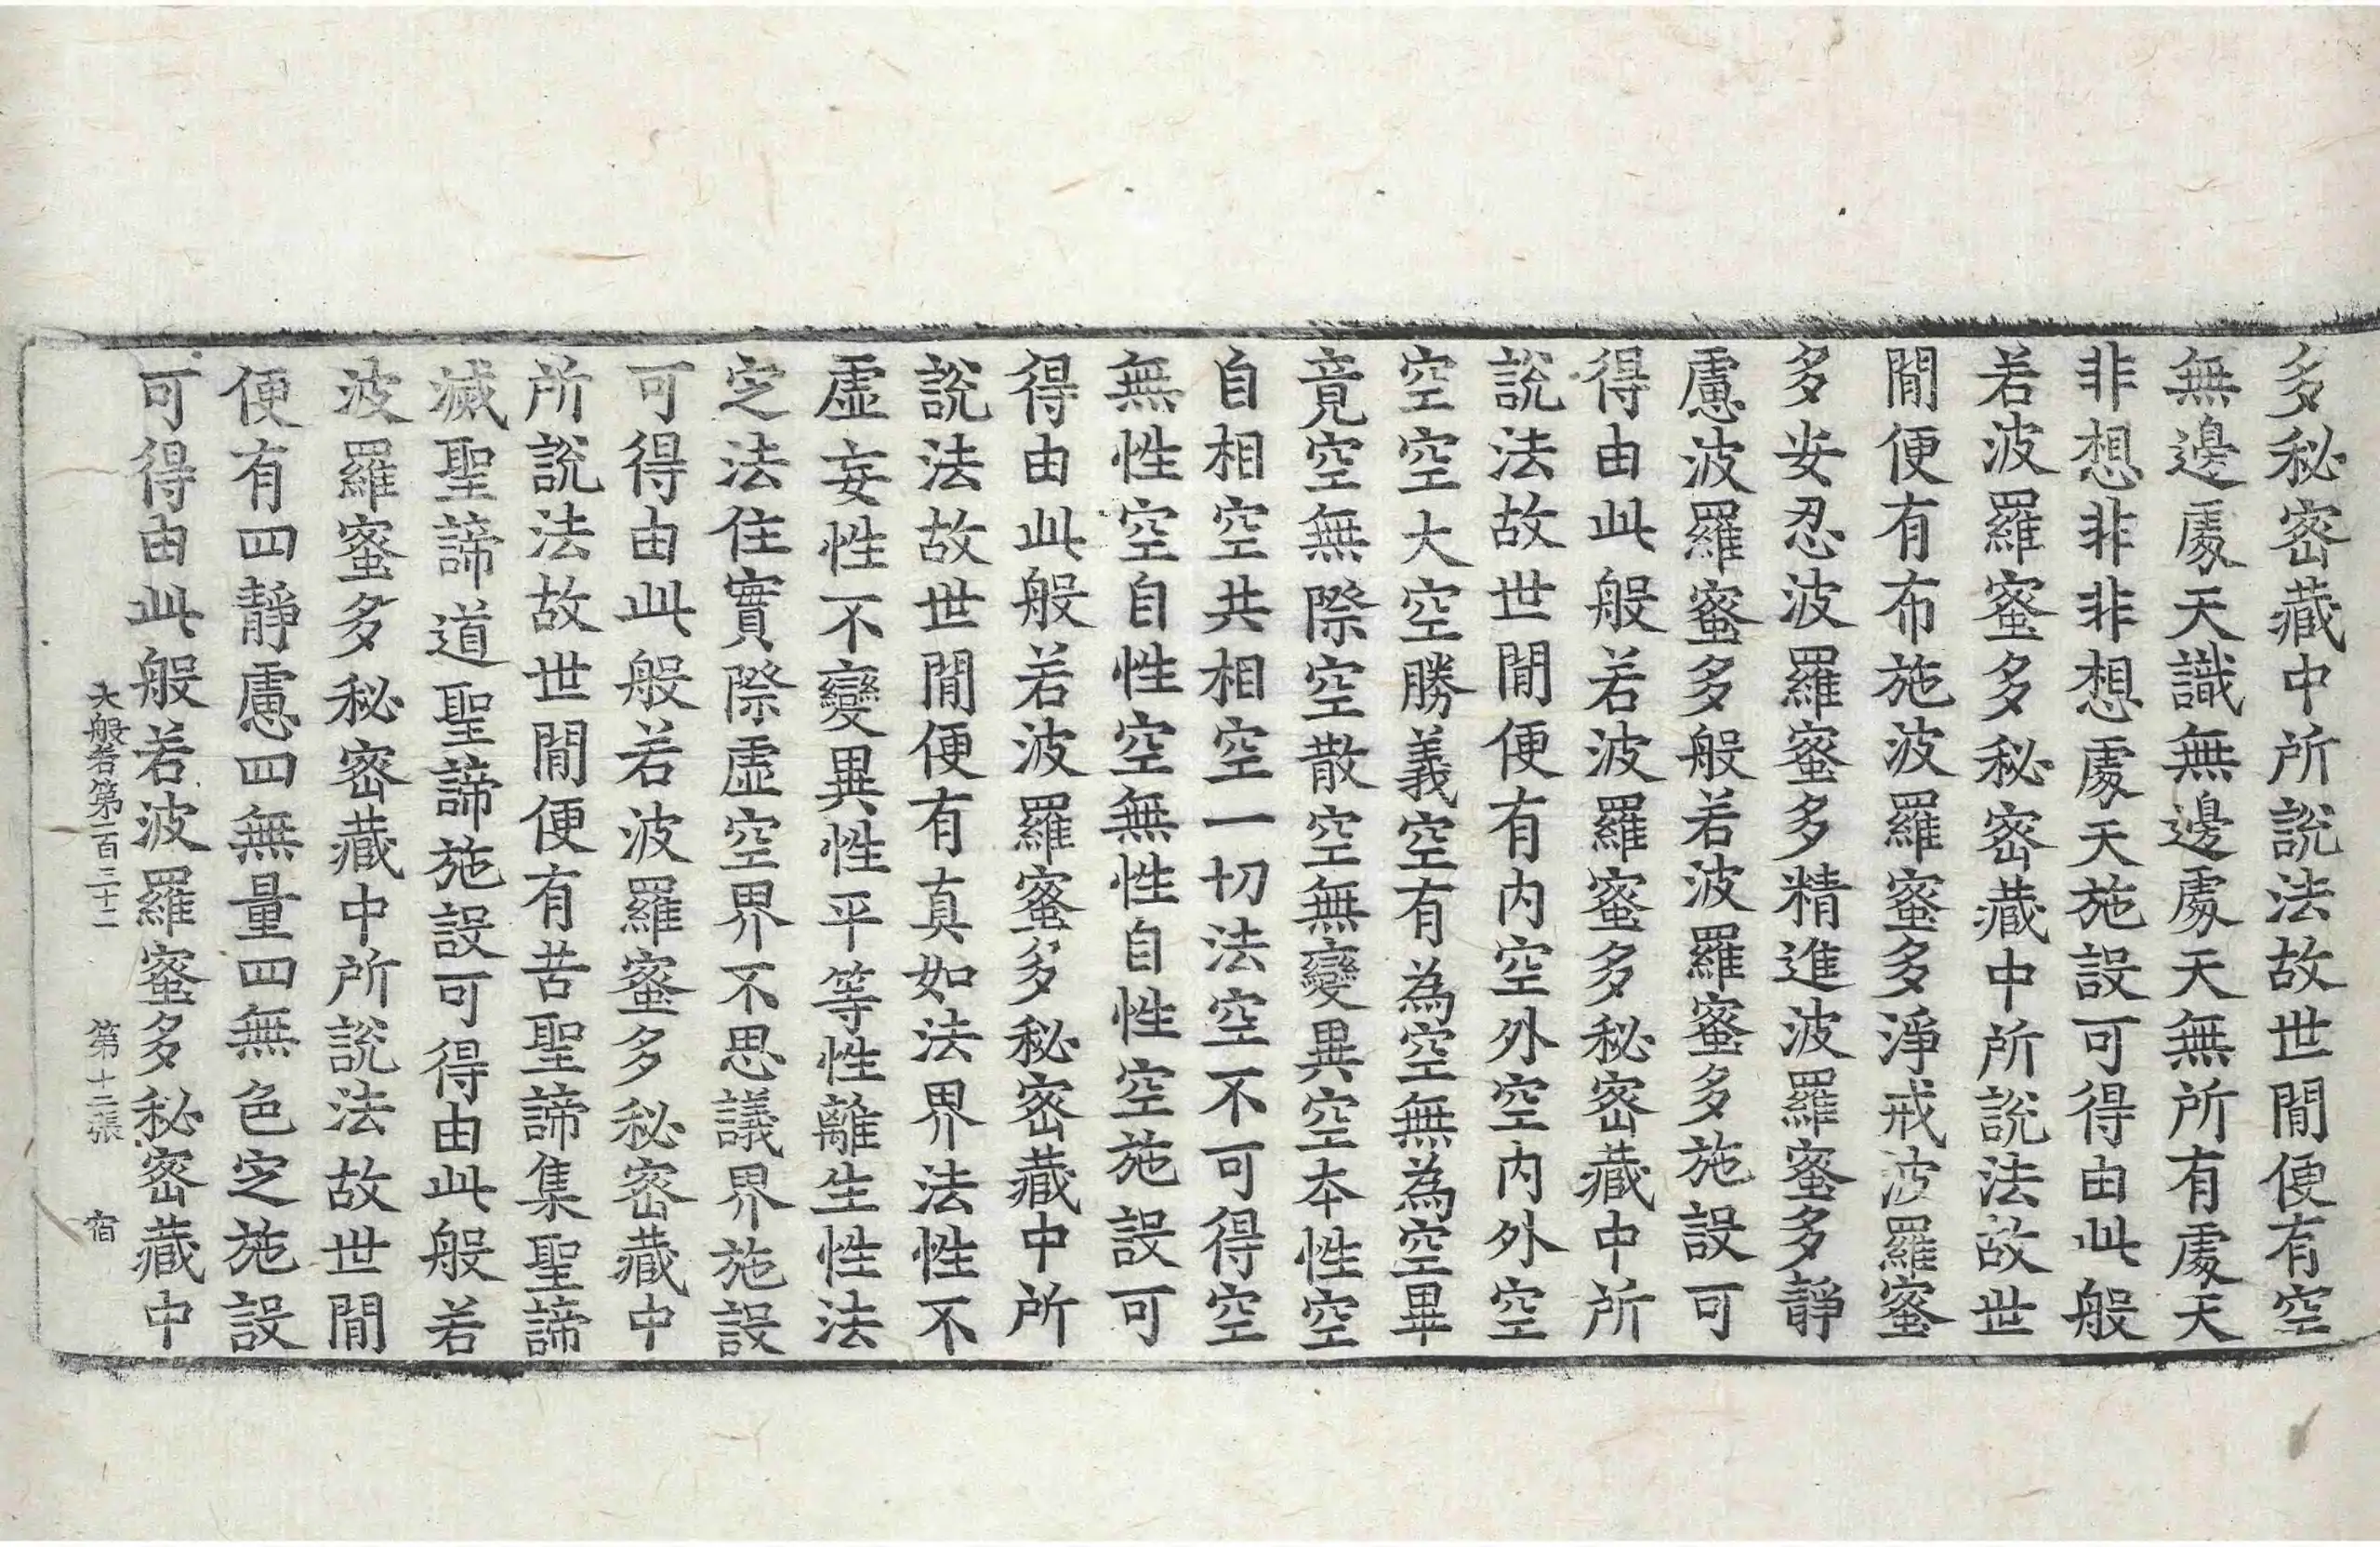 多秘密藏中所說法故世閒便有空
無邊處天識無邊處天無所有處天
非想非非想處天施設可得由此般
若波羅蜜多秘密藏中所說法故世
閒便有布施波羅蜜多淨戒波羅蜜
多安忍波羅蜜多精進波羅蜜多靜
慮波羅蜜多般若波羅蜜多施設可
得由此般若波羅蜜多秘密藏中所
說法故世閒便有內空外空內外空
空空大空勝義空有為空無為空畢
竟空無際空散空無變異空本性空
自相空共相空一切法空不可得空
無性空自性空無性自性空施設可
得由此般若波羅蜜多秘密藏中所
說法故世閒便有真如法界法性不
虛妄性不變異性平等性離生性法
定法住實際虛空界不思議界施設
可得由此般若波羅蜜多秘密藏中
所說法故世閒便有苦聖諦集聖諦
滅聖諦道聖諦施設可得由此般若
波羅蜜多秘密藏中所說法故世閒
便有四靜慮四無量四無色定施設
可得由此般若波羅蜜多秘密藏中
大般若第一百三十二 第十二張 宿